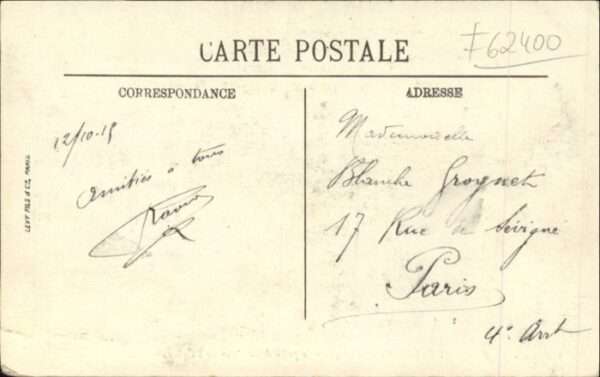 CARTE POSTALE
F62400
CORRESPONDANCE
ADRESSE
12/10-15
Amitiés à tous
Raoul
LEVY FILS & CIE, PARIS
Mademoiselle
Blanche Grognet
17 Rue de Sévigné
Paris
4e Arrt